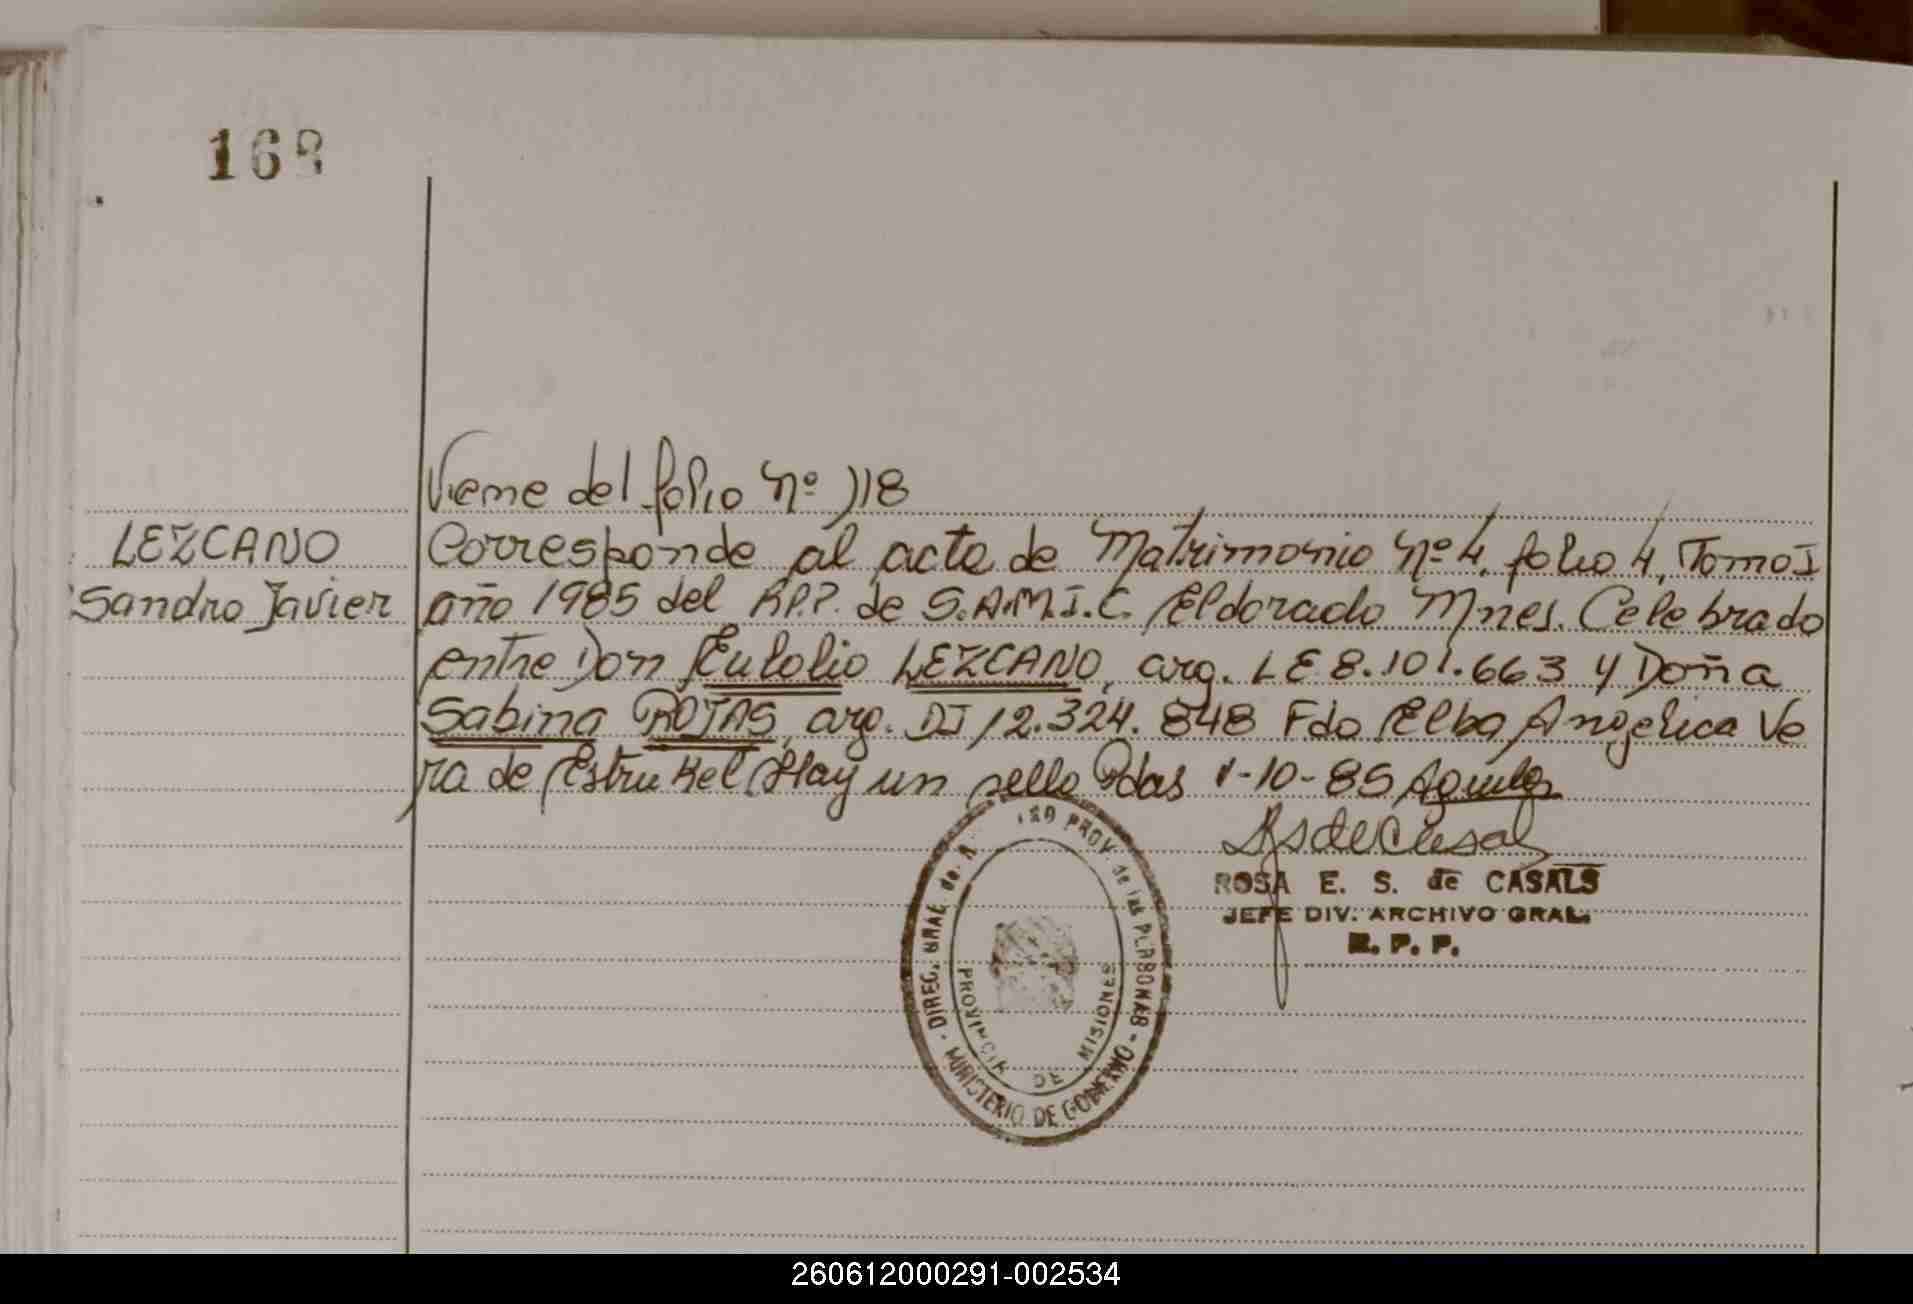 168
Viene del folio Nº 118
LEZCANO
Sandro Javier
Corresponde al acta de Matrimonio Nº 4, folio 4, Tomo I
año 1985 del R.P.P. de S.A.M.I.C. Eldorado Mnes. Celebrado
entre Don Eulolio LEZCANO, arg. LE 8.101.663 y Doña
Sabina ROJAS, arg. DI 12.324.848 Fdo Elba Angelica Ve
ra de Estrukel. Hay un sello Pdas 1-10-85
ROSA E. S. de CASALS
JEFE DIV. ARCHIVO GRAL.
R. P. P.
DIREC. GRAL. de PROV. de las PERSONAS - MINISTERIO DE GOBIERNO -
PROVINCIA DE MISIONES
260612000291-002534